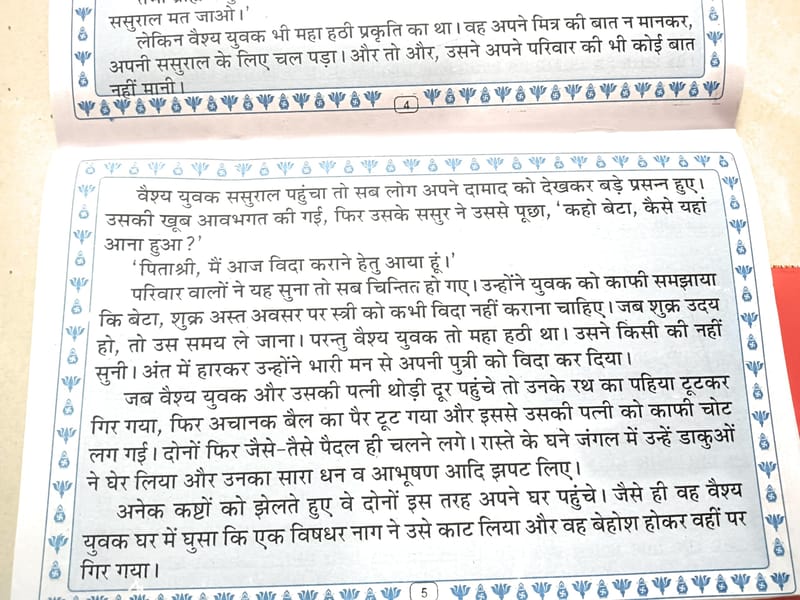 ससुराल मत जाओ।’
लेकिन वैश्य युवक भी महा हठी प्रकृति का था। वह अपने मित्र की बात न मानकर,
अपनी ससुराल के लिए चल पड़ा। और तो और, उसने अपने परिवार की भी कोई बात
नहीं मानी।
4
वैश्य युवक ससुराल पहुंचा तो सब लोग अपने दामाद को देखकर बड़े प्रसन्न हुए।
उसकी खूब आवभगत की गई, फिर उसके ससुर ने उससे पूछा, ‘कहो बेटा, कैसे यहां
आना हुआ?’
‘पिताश्री, मैं आज विदा कराने हेतु आया हूं।’
परिवार वालों ने यह सुना तो सब चिन्तित हो गए। उन्होंने युवक को काफी समझाया
कि बेटा, शुक्र अस्त अवसर पर स्त्री को कभी विदा नहीं कराना चाहिए। जब शुक्र उदय
हो, तो उस समय ले जाना। परन्तु वैश्य युवक तो महा हठी था। उसने किसी की नहीं
सुनी। अंत में हारकर उन्होंने भारी मन से अपनी पुत्री को विदा कर दिया।
जब वैश्य युवक और उसकी पत्नी थोड़ी दूर पहुंचे तो उनके रथ का पहिया टूटकर
गिर गया, फिर अचानक बैल का पैर टूट गया और इससे उसकी पत्नी को काफी चोट
लग गई। दोनों फिर जैसे-तैसे पैदल ही चलने लगे। रास्ते के घने जंगल में उन्हें डाकुओं
ने घेर लिया और उनका सारा धन व आभूषण आदि झपट लिए।
अनेक कष्टों को झेलते हुए वे दोनों इस तरह अपने घर पहुंचे। जैसे ही वह वैश्य
युवक घर में घुसा कि एक विषधर नाग ने उसे काट लिया और वह बेहोश होकर वहीं पर
गिर गया।
5